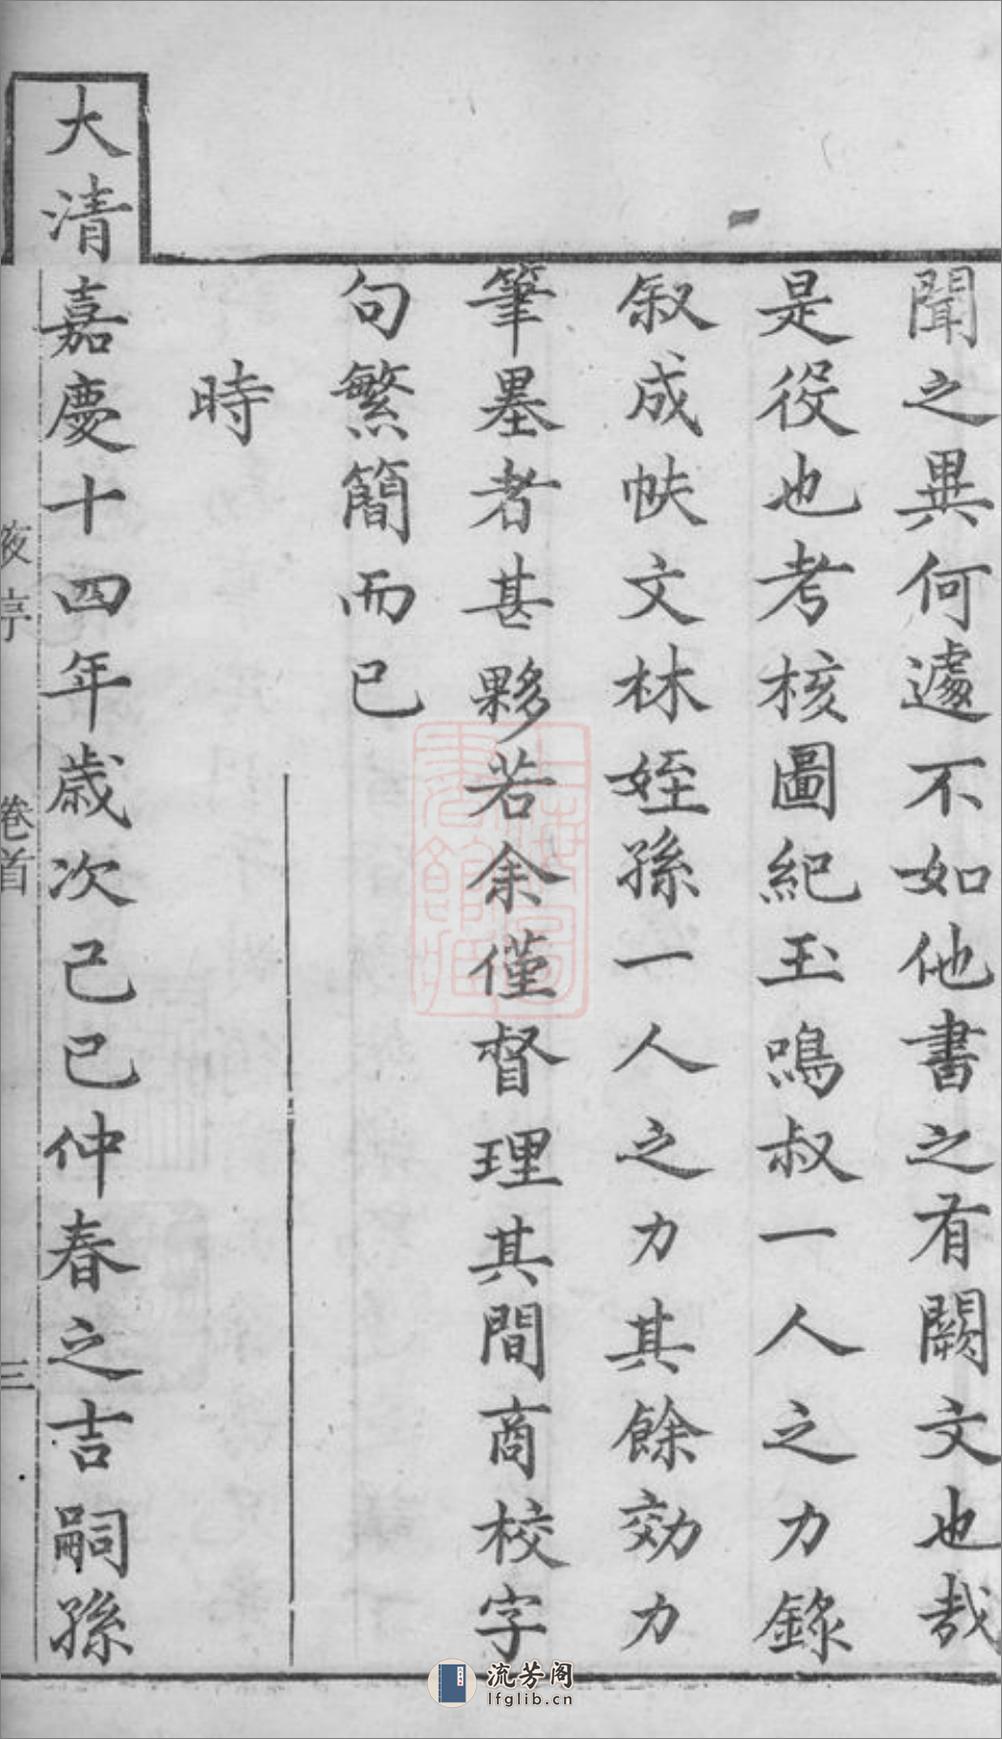 聞之異何遽不如他書之有闕文也哉
是役也考核圖紀玉鳴叔一人之力錄
叙成帙文林姪孫一人之力其餘効力
筆墨者甚夥若余僅督理其間商校字
句繁簡而已
時
大清嘉慶十四年歲次己巳仲春之吉嗣孫
卷首
三
流芳阁
lfglib.cn